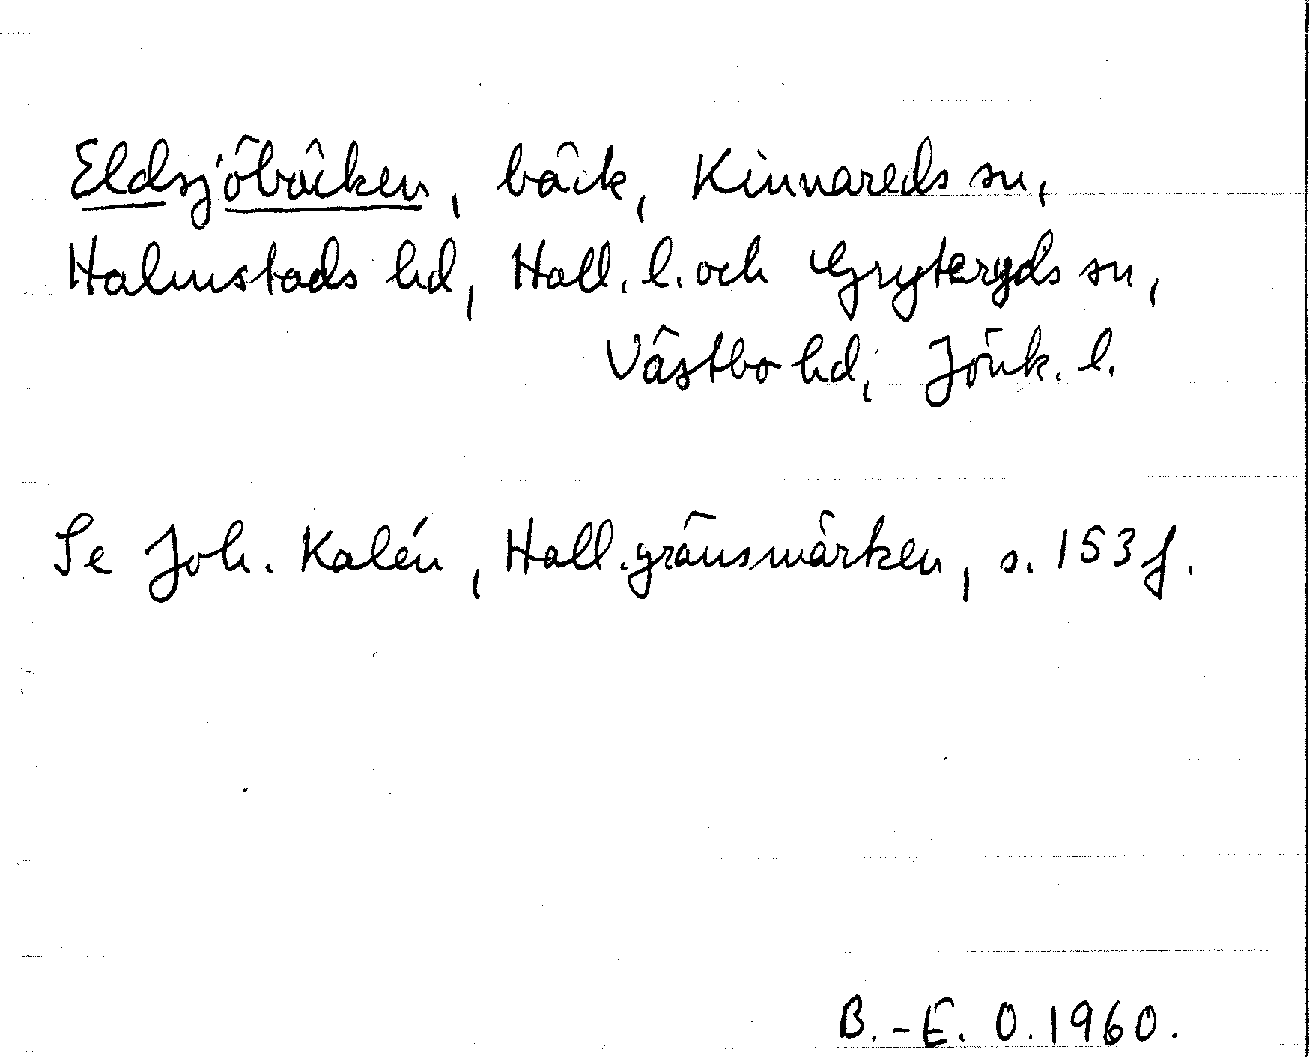 Eldsjöbäcken, bäck, Kinnareds sn,
Halmstads hd, Hall. l. och Gryteryds sn,
Västbo hd, Jönk. l.
Se Joh. Kalén, Hall. gränsmärken, s. 153 f.
B.-E. O. 1960.